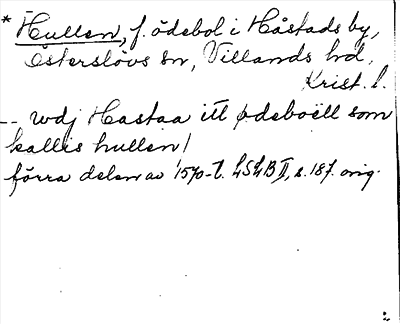 * Hullen, f. ödebol i Håstads by,
Österslövs sn, Villands hd,
Krist. l.
-- wdj Hastaa itt ødeboell som
kallis hullen/
förra delen av 1570-t. LSLB II, s. 187. orig.